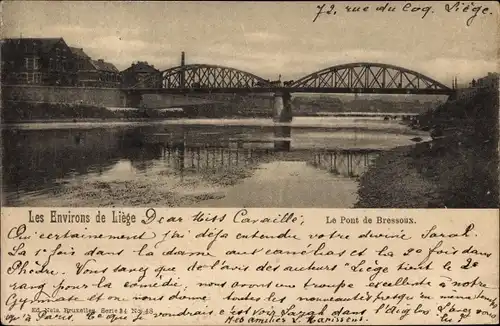 72, rue du Coq, Liège.
Les Environs de Liège
Le Pont de Bressoux.
Dear Miss Cavaillé,
Oui certainement j'ai déja entendu votre divine Sarah.
La 1e fois dans la dame aux camélias et la 2e fois dans
Phèdre. Vous savez que de l'avis des auteurs "Liège tient le 2e
rang pour la comédie, nous avons une troupe excellente à notre
Gymnase et on nous donne toutes les nouveautés presqu'en même temps
qu'à Paris. Ce que je voudrais c'est voir Sarah dans l'Aiglon
Ed. Nels, Bruxelles, Serie 34 No 48